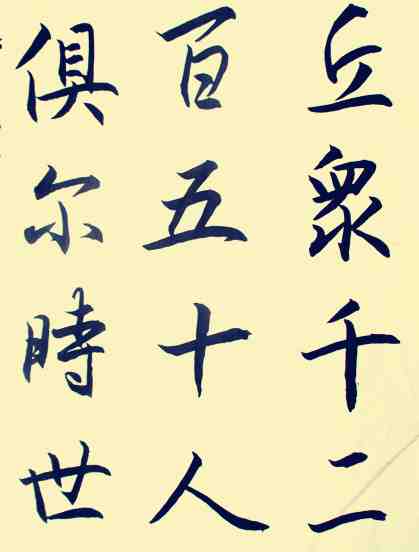 丘衆千二
百五十人
俱尔時世